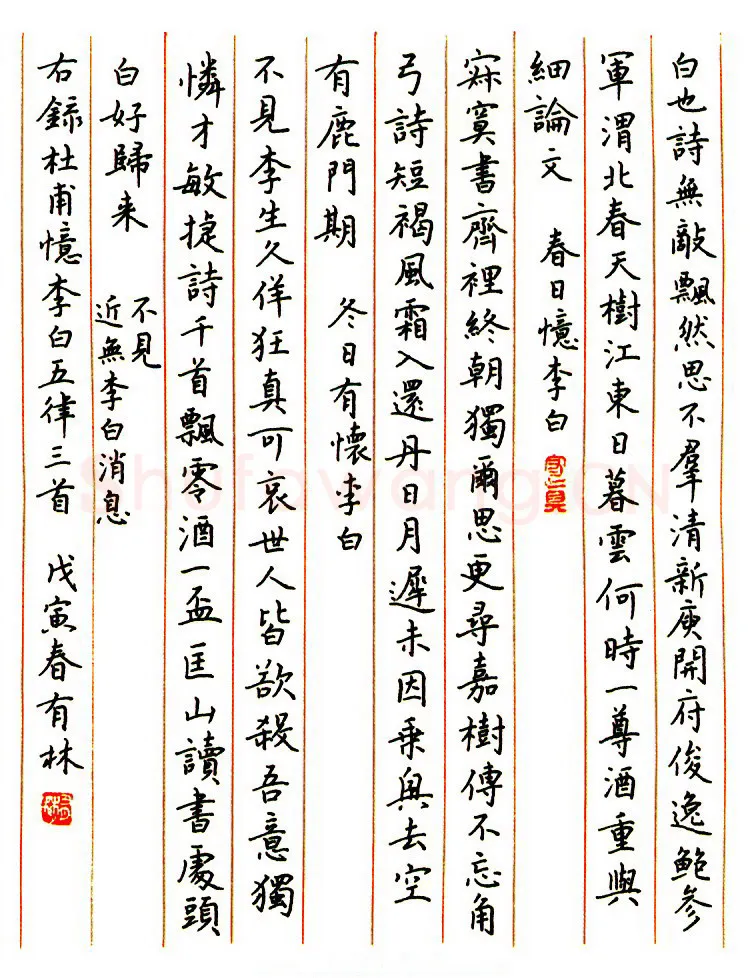 白也詩無敵飄然思不羣清新庾開府俊逸鮑參
軍渭北春天樹江東日暮雲何時一尊酒重與
細論文 春日憶李白
寂寞書齋裡終朝獨爾思更尋嘉樹傳不忘角
弓詩短褐風霜入還丹日月遲未因乘興去空
有鹿門期 冬日有懷李白
不見李生久佯狂真可哀世人皆欲殺吾意獨
憐才敏捷詩千首飄零酒一盃匡山讀書處頭
白好歸来 不見
近無李白消息
右錄杜甫憶李白五律三首 戊寅春有林
Shufawang.CN